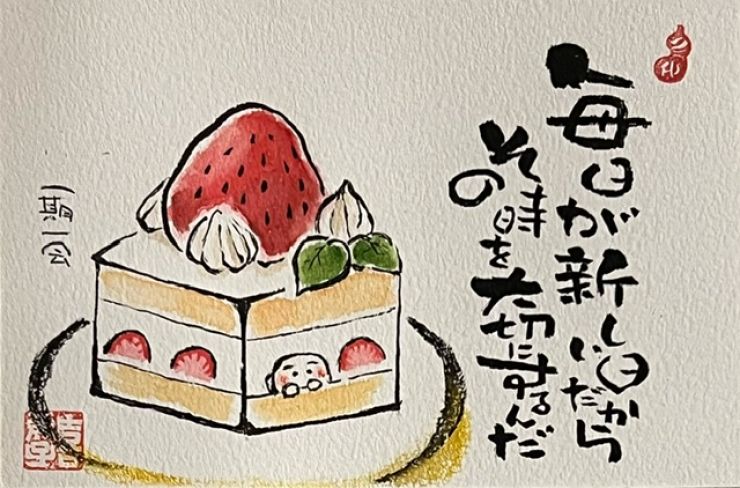 毎日が新しい日だから
その時を大切にするんだ
一期一会